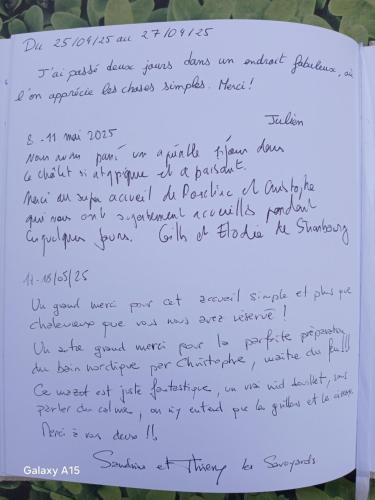 Du 25/04/25 au 27/04/25
J'ai passé deux jours dans un endroit fabuleux, où
l'on apprécie les choses simples. Merci!
Julien
8-11 mai 2025
Nous avons passé un agréable séjour dans
ce châlet si atypique et apaisant.
Merci au super accueil de et Christophe
qui nous ont accueillis pendant
ces quelques jours. et Elodie de Strasbourg
/05/25
Un grand merci pour cet accueil simple et plus que
chaleureux que vous nous avez réservé !
Un autre grand merci pour la parfaite préparation
du bain nordique par Christophe, maître du feu!!!
Ce mazot est juste fantastique, un vrai nid douillet, sans
parler du calme, on n'y entend que les grillons et
Merci à vous deux !!
Sandrine et Thierry les Savoyards
Galaxy A15